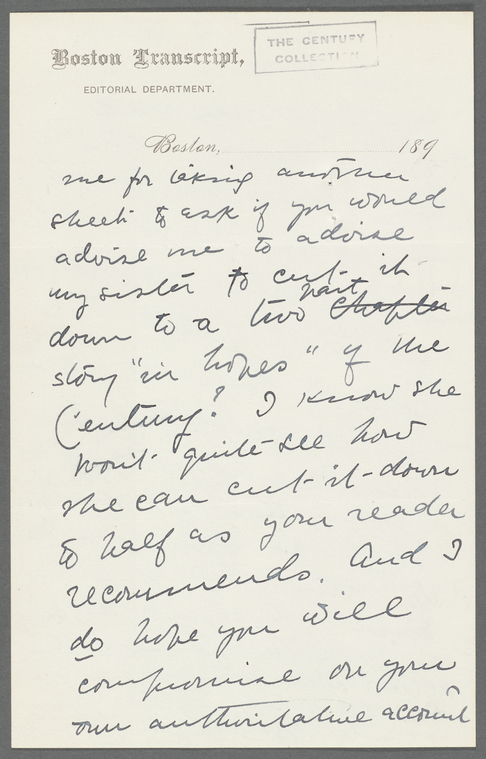 Boston Transcript,
THE CENTURY
COLLECTION
EDITORIAL DEPARTMENT.
Boston, 189
me for taking another
sheet to ask if you would
advise me to advise
my sister to cut it
down to a two part chapter
story "in hopes" of the
Century? I know she
won't quite see how
she can cut it down
to half as your reader
recommends. And I
do hope you will
compromise on your
own authoritative account